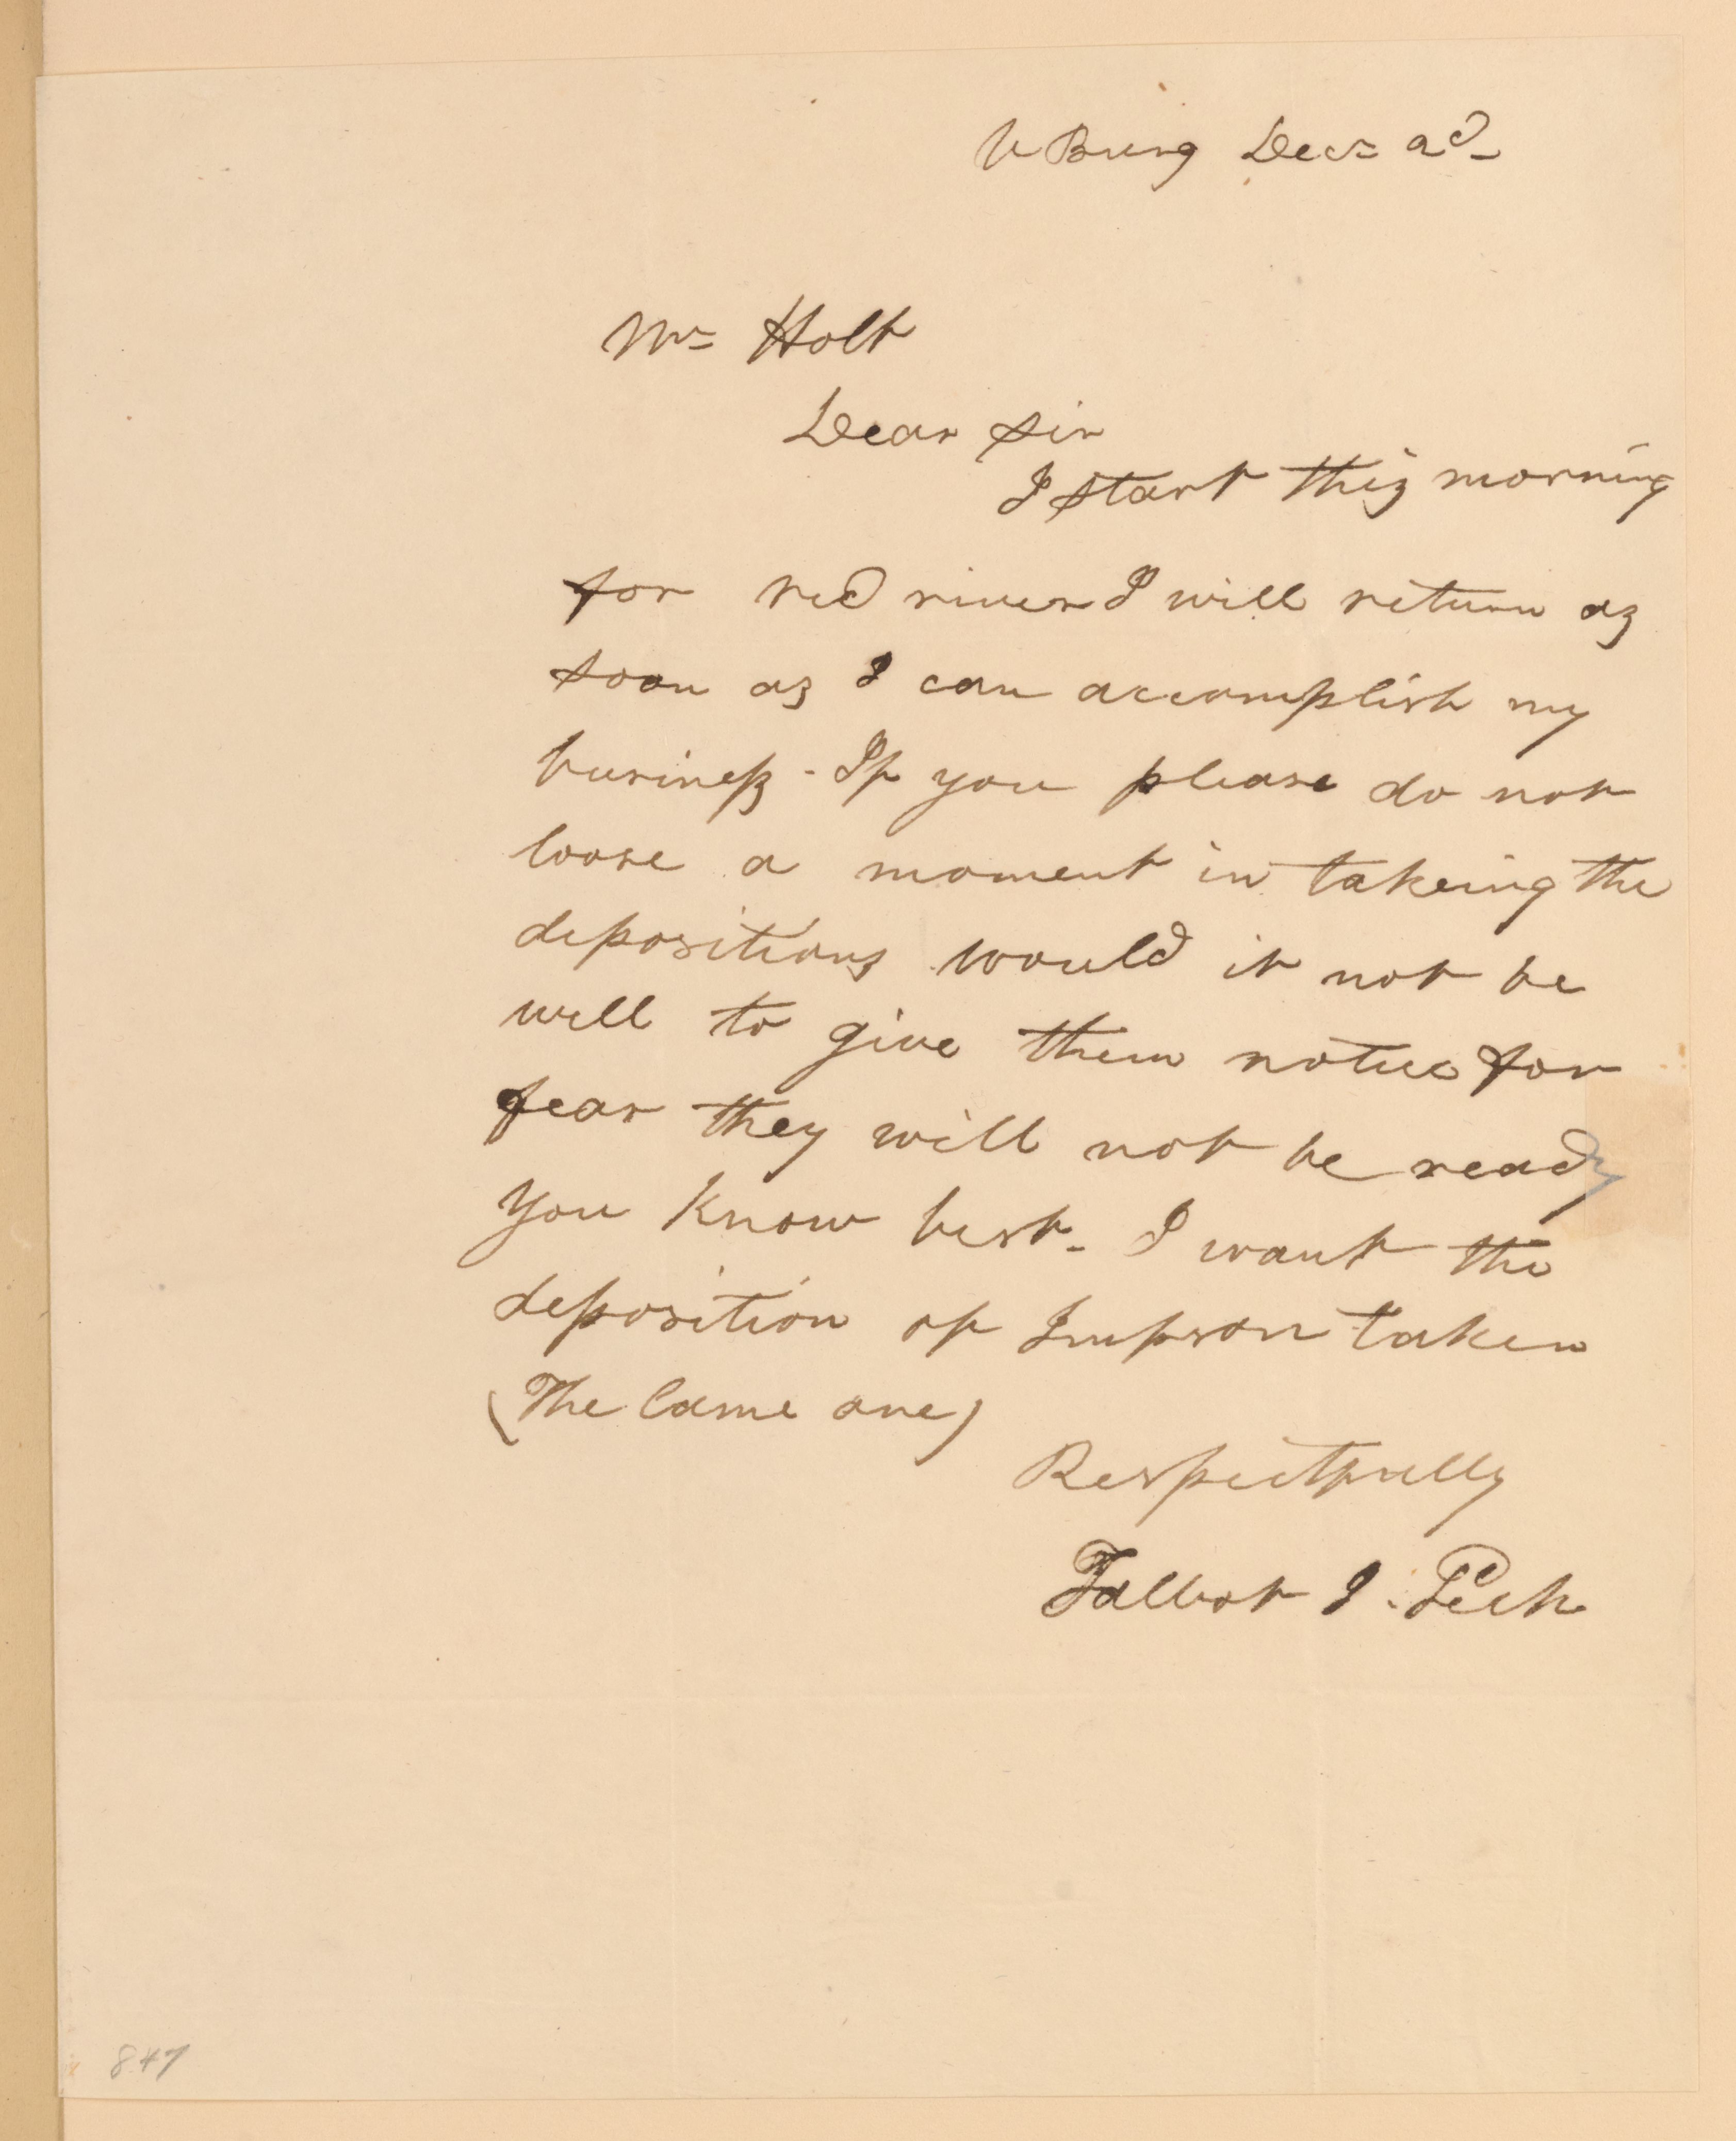 V Burg Decr 2d
Mr Holt
Dear Sir
I start this morning
for red river I will return as
soon as I can accomplish my
business - If you please do not
loose a moment in takeing the
depositions would it not be
well to give them notice for
fear they will not be ready
you know best - I want the
deposition of Impson taken
(The lame one)
Respectfully
Talbot I. Peck
847